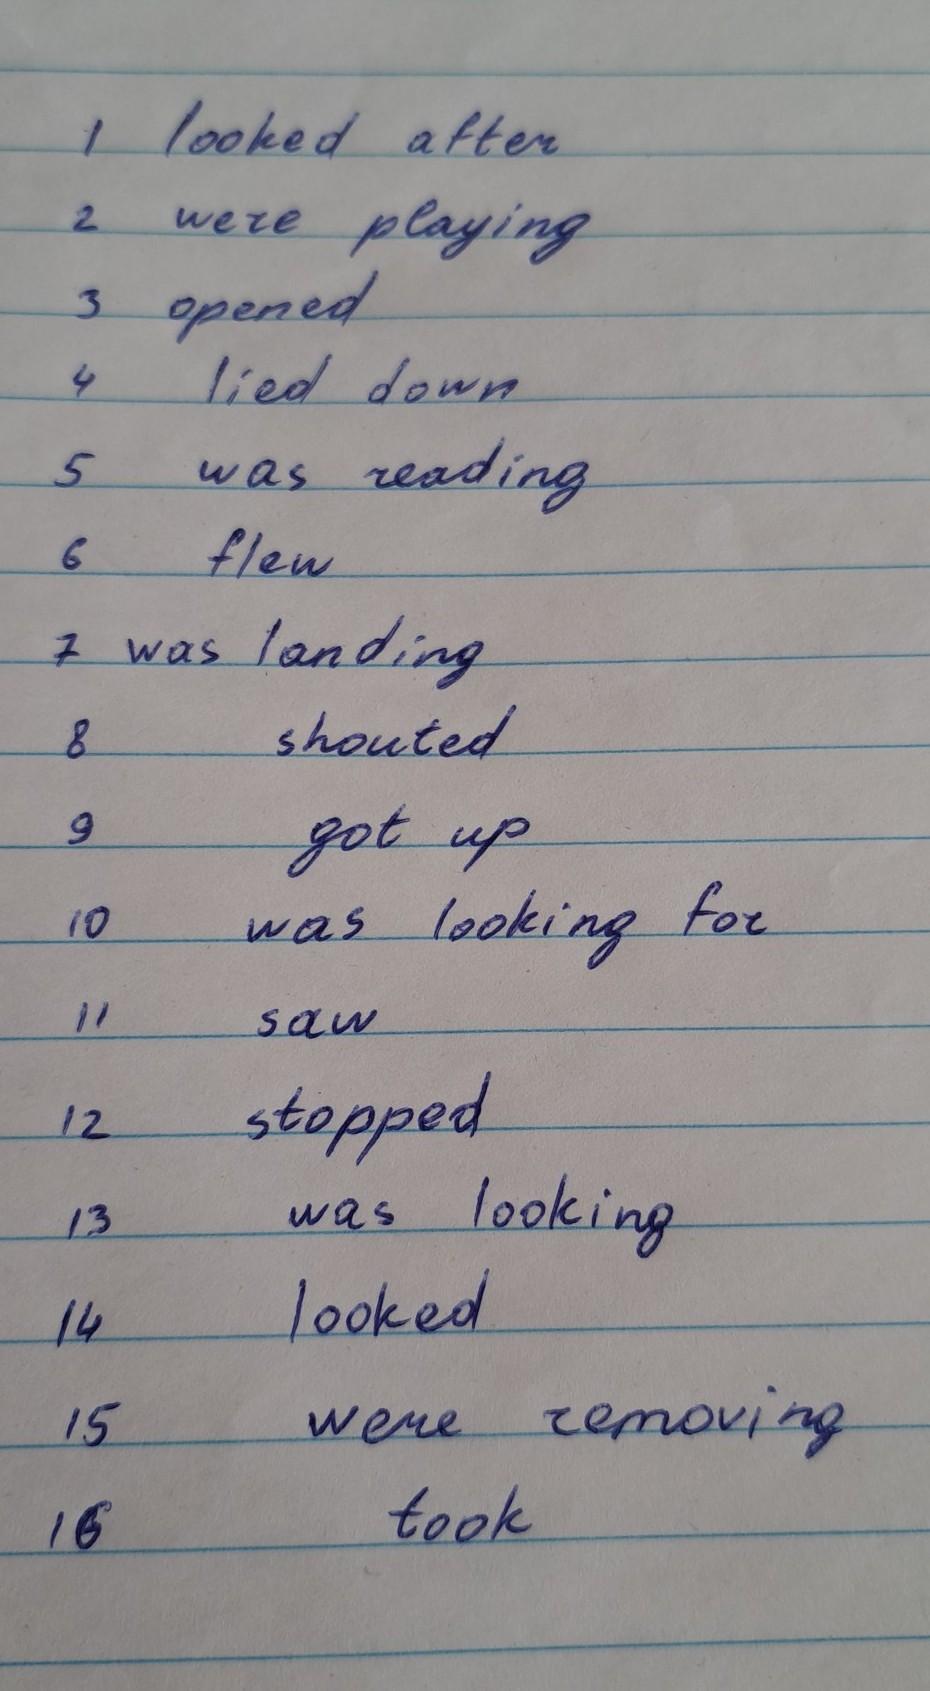 1 looked after
2 were playing
3 opened
4 lied down
5 was reading
6 flew
7 was landing
8 shouted
9 got up
10 was looking for
11 saw
12 stopped
13 was looking
14 looked
15 were removing
16 took